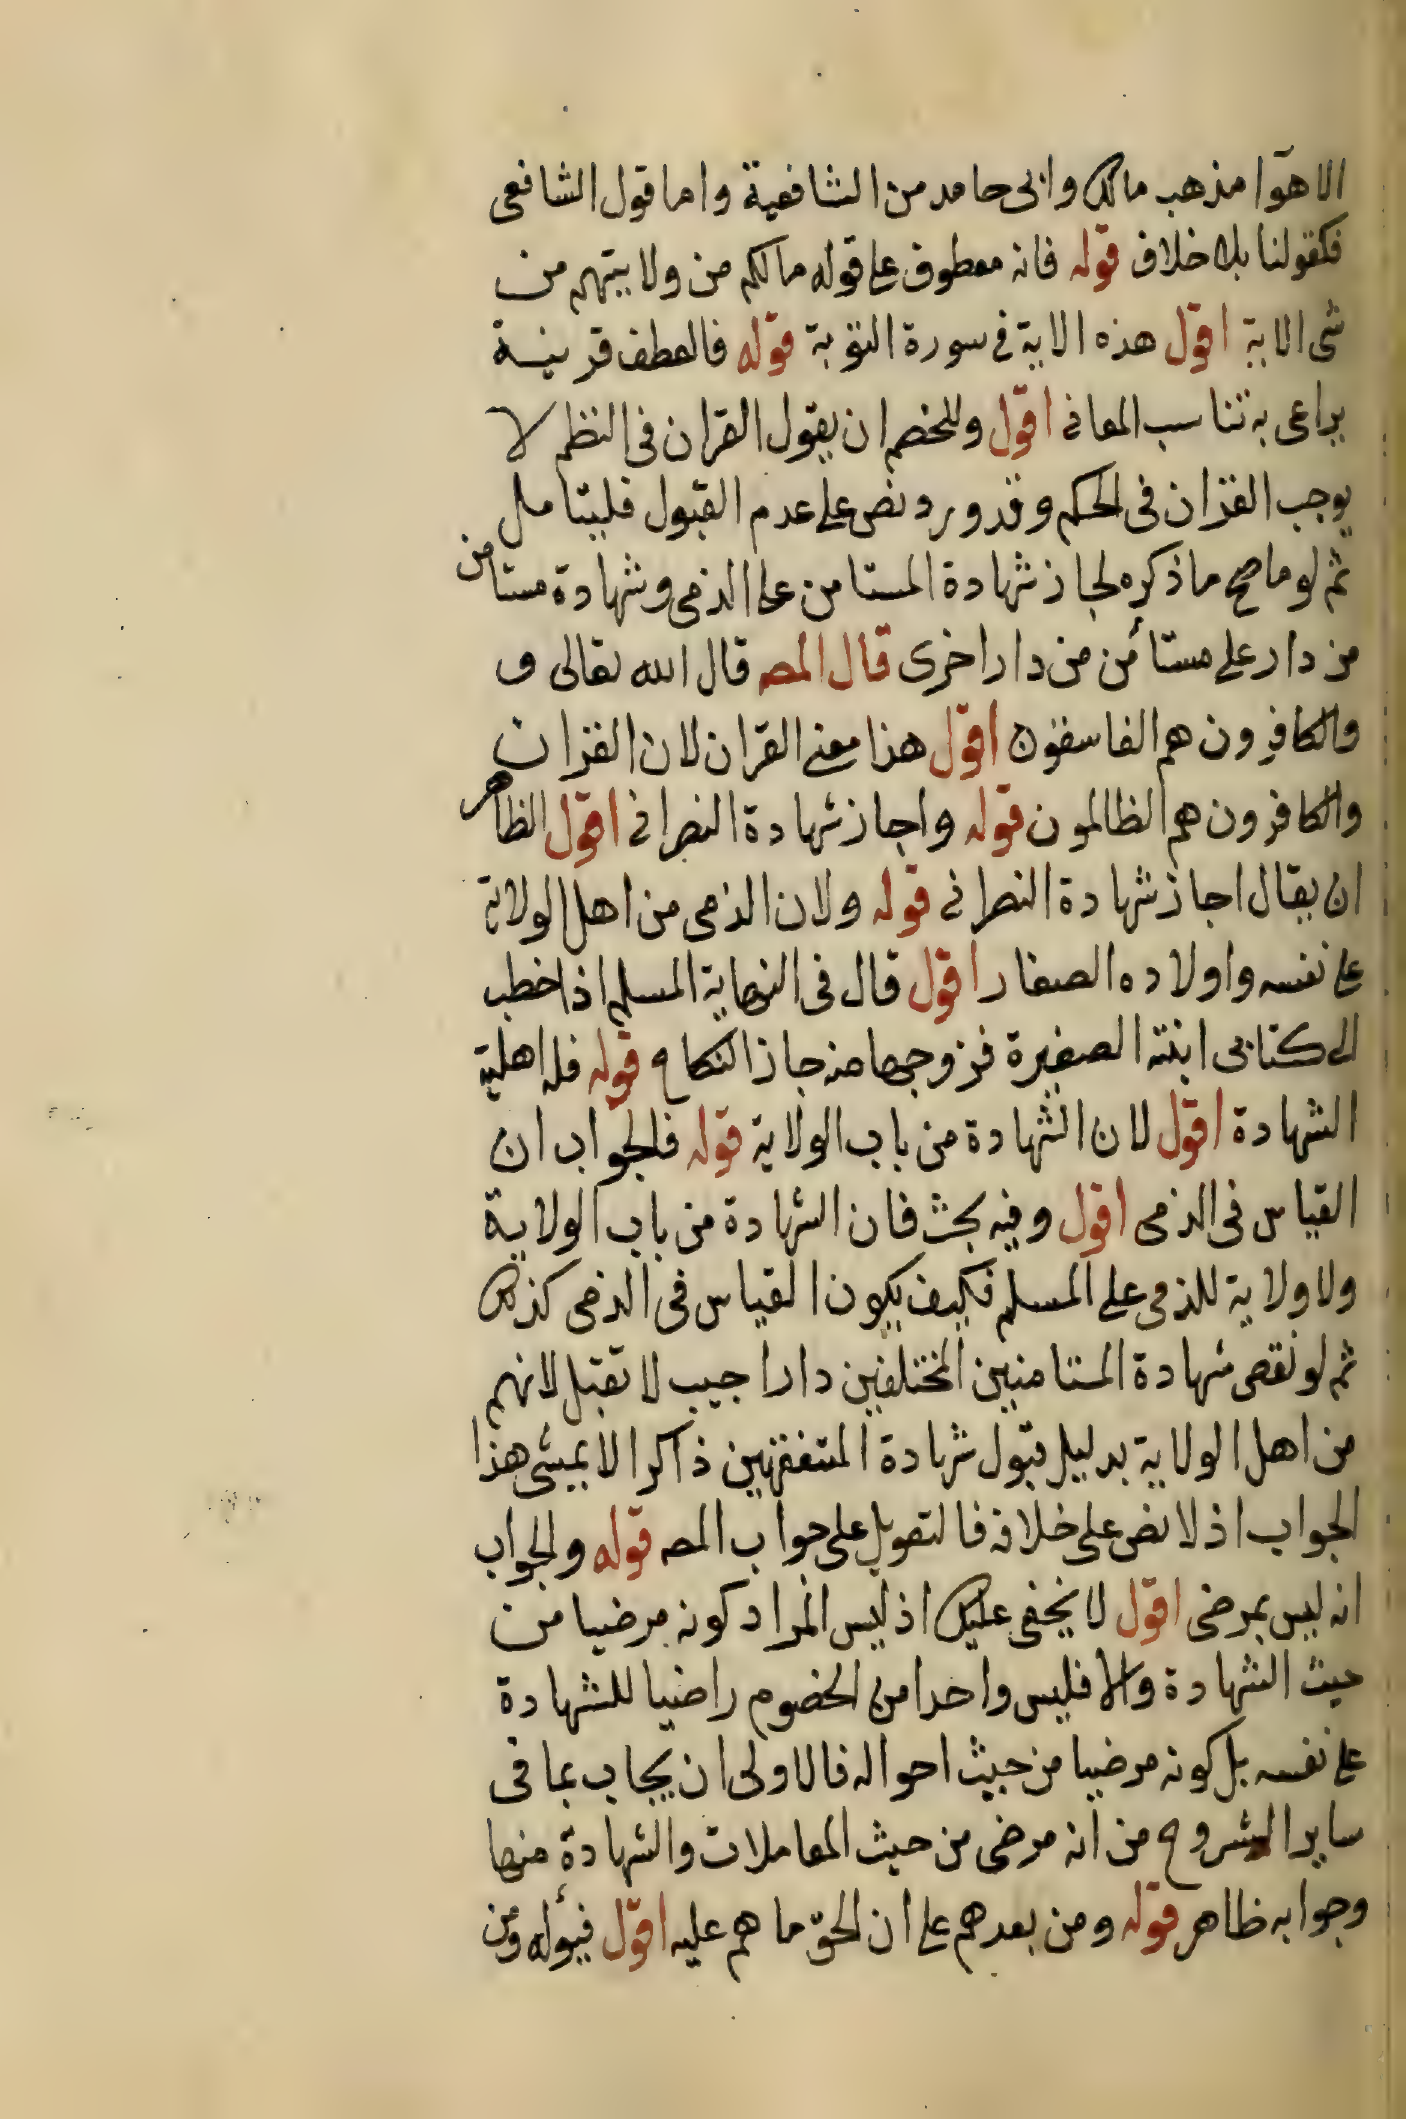 الاهوآ مذهب مالك وابى حامد من الشافعية واما قول الشافعى
فكقولنا بلا خلاف قوله فانه معطوف على قوله مالكم من ولايتهم من
شى الاية اقول هذه الاية فى سورة التوبة قوله فالعطف قرينة
يراعى به تناسب المعانى اقول وللخصم ان يقول القران فى النظم لا
يوجب القران فى الحكم وقد ورد نص على عدم القبول فليتامل
ثم لو ما صح ما ذكره لجاز شهادة المستامن على الذمى وشهادة مستامن
من دار على مستأمن من دار اخرى قال المصه قال الله تعالى و
والكافرون هم الفاسقون اقول هذا معنى القران لان القران
والكافرون هم الظالمون قوله واجاز شهادة النصرانى اقول الظاهر
ان يقال اجاز شهادة النصرانى قوله ولان الذمى من اهل الولاية
على نفسه واولاده الصغار اقول قال فى النهاية المسلم اذا خطب
الى كتابى ابنته الصغيرة فزوجها منه جاز النكاح قوله فله اهلية
الشهادة اقول لان الشهادة من باب الولاية قوله فالجواب ان
القياس فى الذمى اقول وفيه بحث فان الشهادة من باب الولاية
ولا ولاية للذمى على المسلم فكيف يكون القياس فى الذمى كذلك
ثم لو نقض شهادة المستامنين المختلفين دارا جيب لا تقبل لانهم
من اهل الولاية بدليل قبول شهادة المتفقهين ذاكرا لا يمشى هذا
الجواب اذ لا نص على خلافه فالتعويل على جواب المصه قوله والجواب
انه ليس بمرضى اقول لا يخفى عليك اذ ليس المراد كونه مرضيا من
حيث الشهادة والا فليس واحدا من الخصوم راضيا للشهادة
على نفسه بل كونه مرضيا من حيث احواله فالاولى ان يجاب بما فى
ساير الشروح من انه مرضى من حيث المعاملات والشهادة منها
وجوابه ظاهر قوله ومن بعدهم على ان الحق ما هم عليه اقول فيؤله ومن